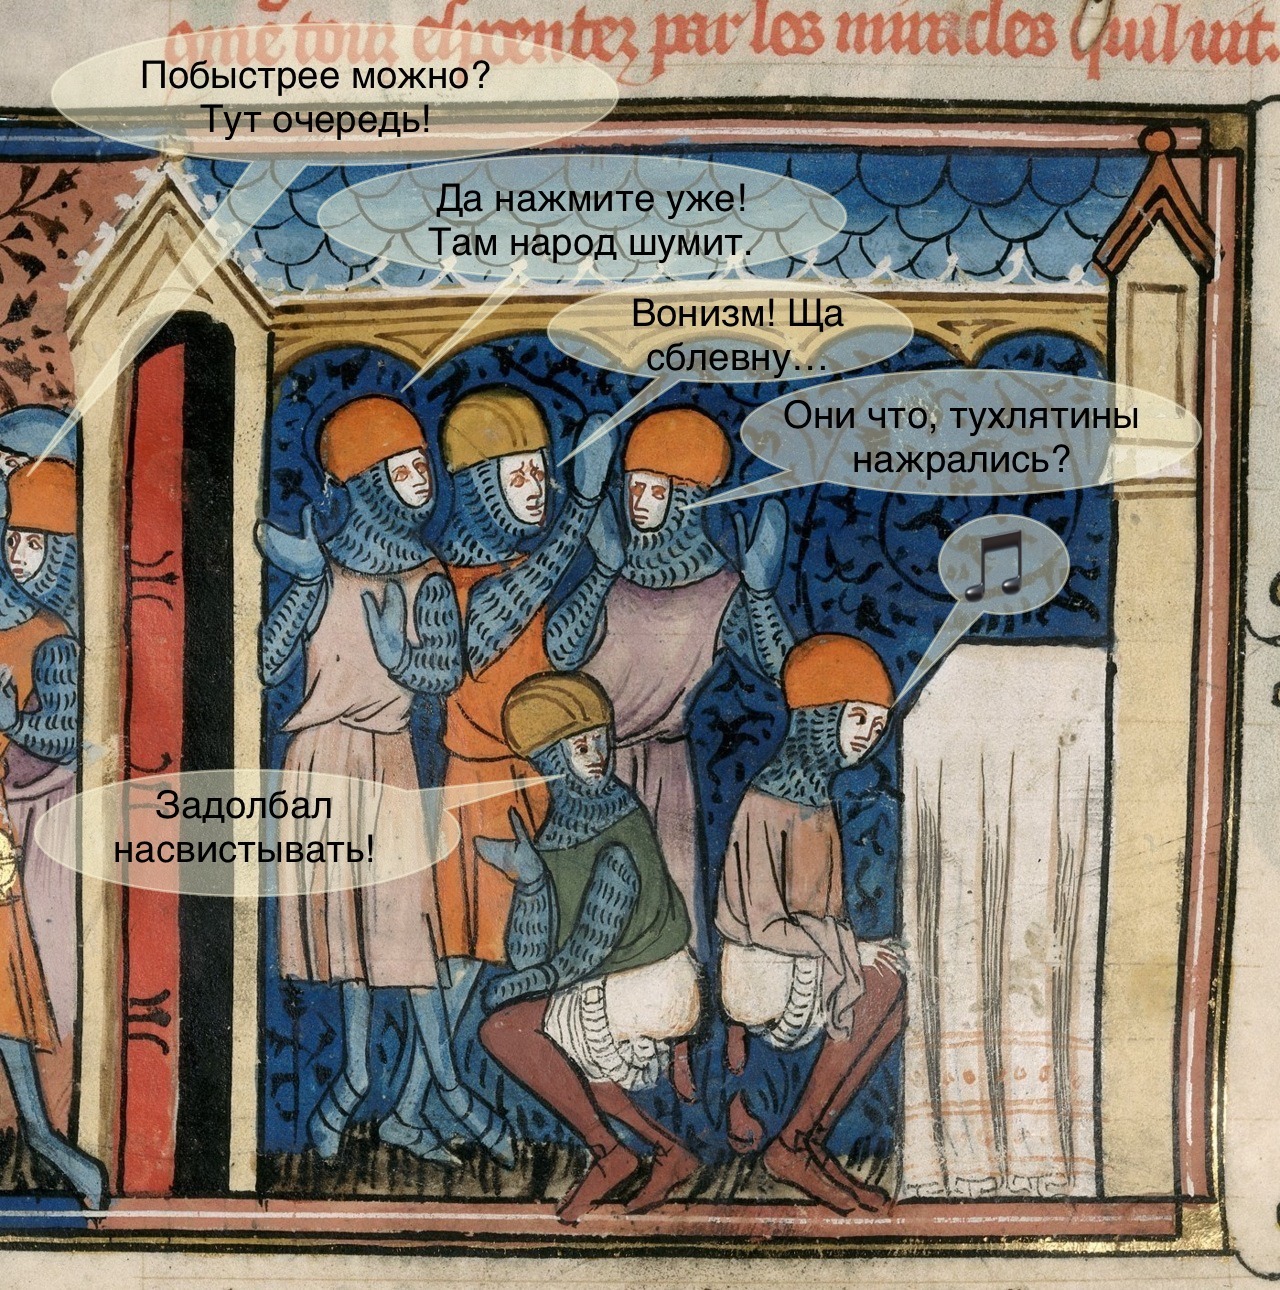 par les miracles quil
Побыстрее можно?
Тут очередь!
Да нажмите уже!
Там народ шумит.
Вонизм! Ща
сблевну...
Они что, тухлятины
нажрались?
Задолбал
насвистывать!